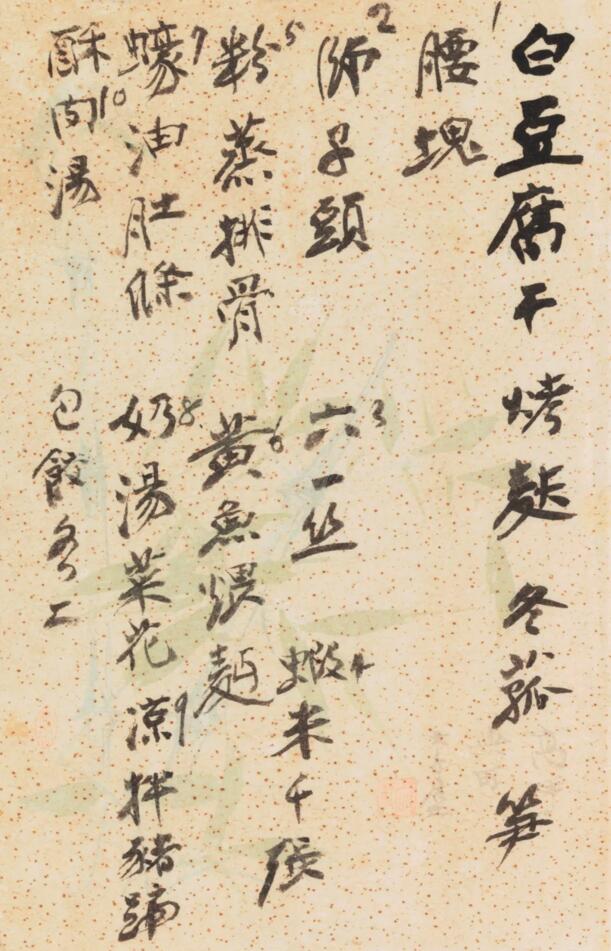 白豆腐干 烤麩 冬菰 笋
腰塊1
獅子頭2 六一丝3 蝦米千張4
粉蒸排骨5 黄魚煨麵6
蠔油肚條7 奶湯菜花8 涼拌豬蹄9
酥肉湯10 包餃